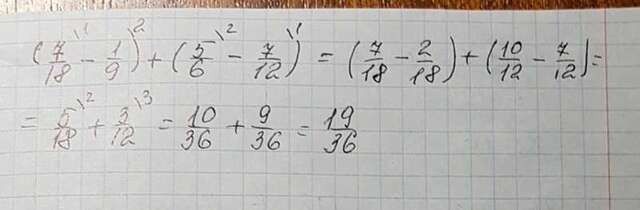 (7/18\1 - 1/9\2) + (5/6\2 - 7/12\1) = (7/18 - 2/18) + (10/12 - 7/12) =
= 5/18\2 + 3/12\3 = 10/36 + 9/36 = 19/36